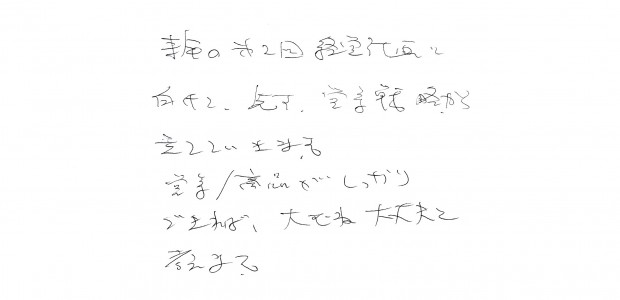 の第2回 経営 に
向けて、先ず、営業戦略から
立てています。
営業/商品がしっかり
できれば、大むね大丈夫と
考えます。